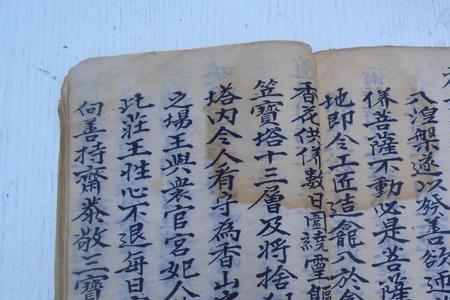 八湟槃遂以發善欲
菩薩不動必是菩薩
地即令工匠造龕八於
香花供數日圍繞靈軀
竺寶塔十三層及將捨
塔內令人看守為香山
之場王與衆官宮妃人
此莊王性心不退每日
向善持齋恭敬三寶